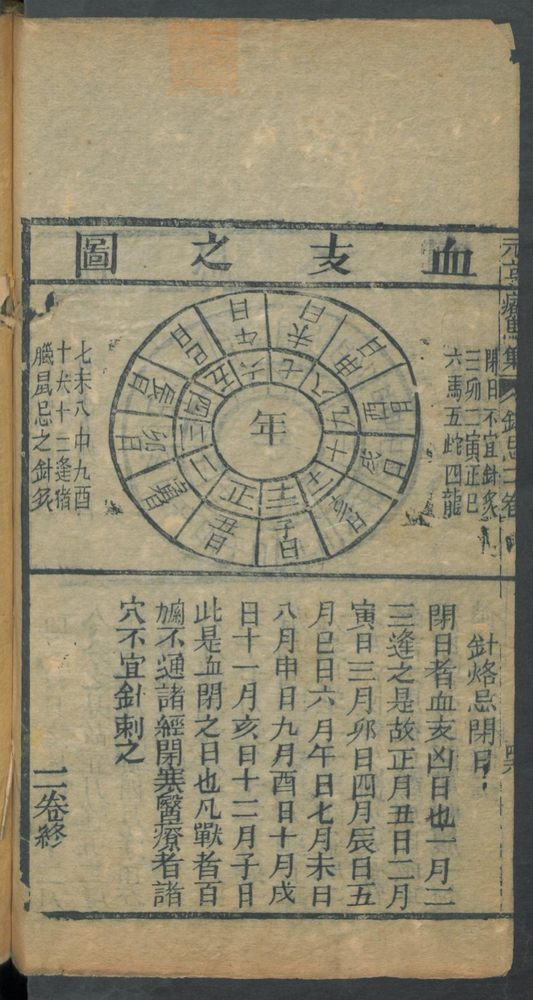 血支之圖
閉日不宜針灸
三卯二寅正巳
六馬五蛇四龍
年
正
二
三
四
五
六
七
八
九
十
十一
十二
丑日
寅日
卯日
辰日
巳日
午日
未日
申日
酉日
戌日
亥日
子日
七未八申九酉
十犬十二逢猪
臘鼠忌之針灸
針烙忌閉日
閉日者血支凶日也一月二
三逢之是故正月丑日二月
寅日三月卯日四月辰日五
月巳日六月午日七月未日
八月申日九月酉日十月戌
日十一月亥日十二月子日
此是血閉之日也凡獸者百
不通諸經閉塞醫療者諸
穴不宜針刺之
二卷終
元亨療馬集
針忌二卷